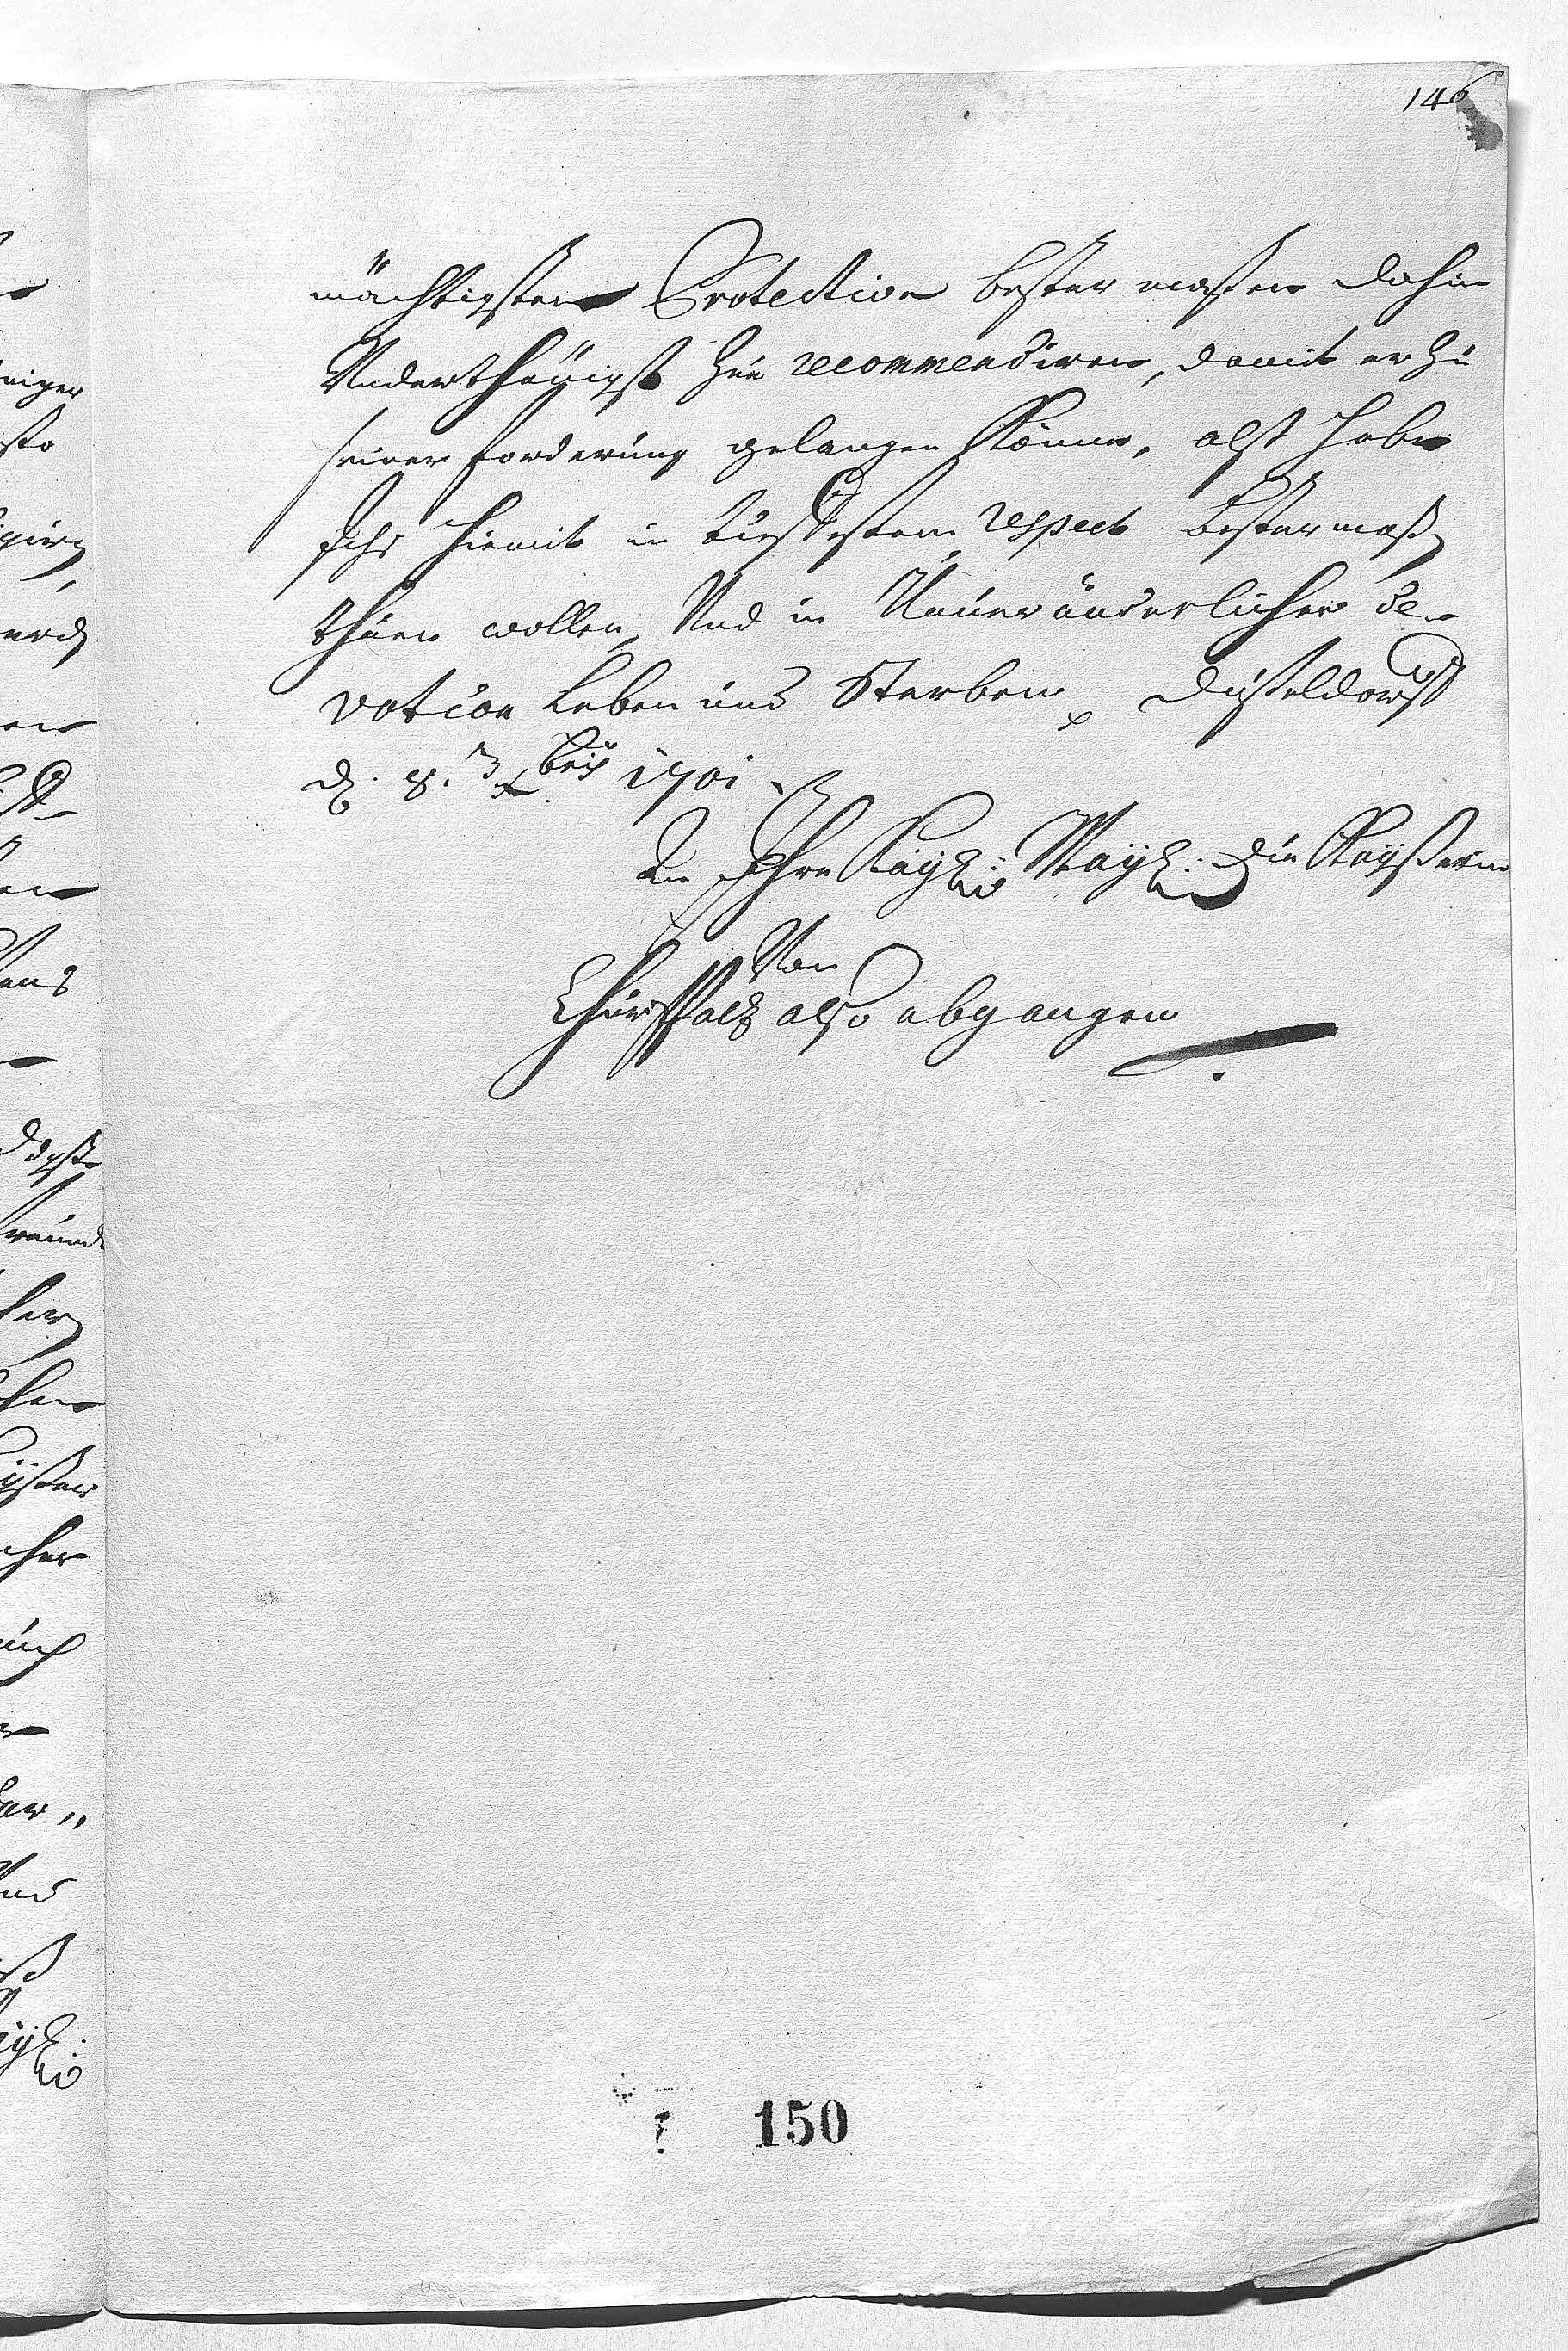 146
mächtigsten Protection bester maßen dahin
Underthänigst zue recommendiren, damit er zu
seiner forderung gelangen Könne, alß habe
Ichs hiemit in tieffestem respect bestermaßen
thuen wollen, Und in Unveränderlicher de-
votion Leben und Sterben. Düßeldorff
d. 8. xbris 1701.
An Ihre Kayl: Mayt: die Kayßerin
Von
Churpfaltz also abgangen
150